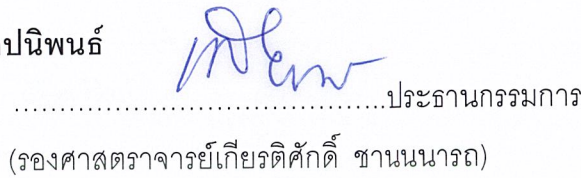 ปนิพนธ์
........................................ประธานกรรมการ
(รองศาสตราจารย์เกียรติศักดิ์ ชานนนารถ)